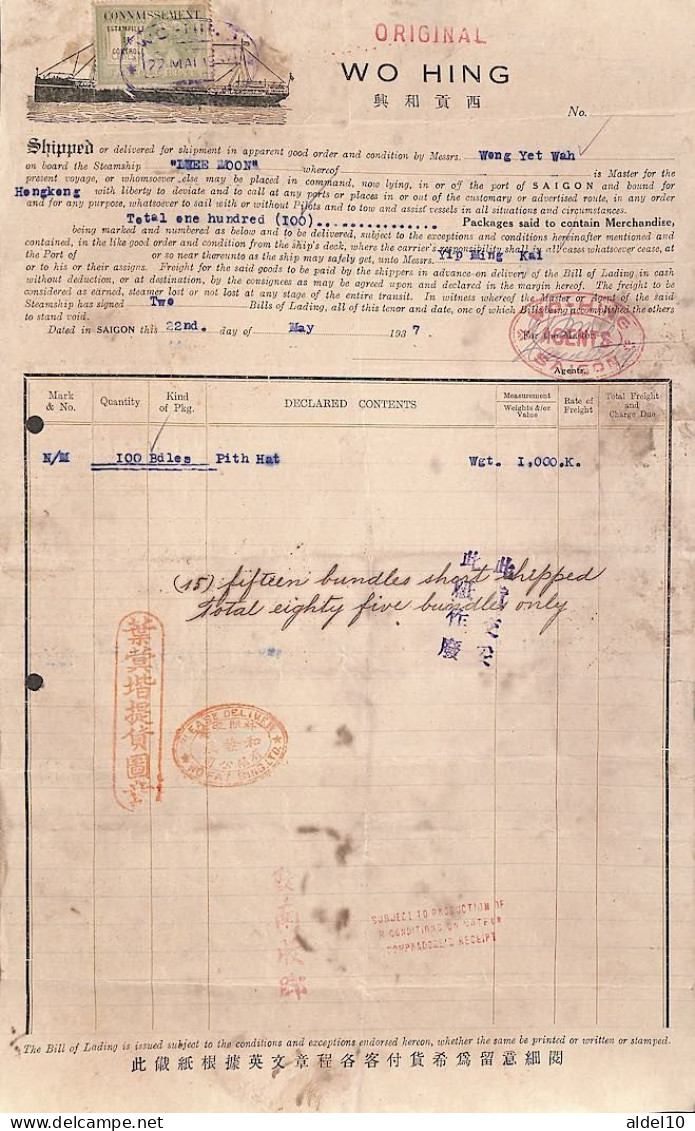 CONNAISSEMENT
ORIGINAL
WO HING
興和貢西
No.
Shipped or delivered for shipment in apparent good order and condition by Messrs. Wong Yet Wah
on board the Steamship "LHEE MOON" whereof is Master for the
present voyage, or whomsoever else may be placed in command, now lying, in or off the port of SAIGON and bound for
Hongkong with liberty to deviate and to call at any ports or places in or out of the customary or advertised route, in any order
and for any purpose, whatsoever to sail with or without Pilots and to tow and assist vessels in all situations and circumstances.
Total one hundred (100).............. Packages said to contain Merchandise,
being marked and numbered as below and to be delivered, subject to the exceptions and conditions hereinafter mentioned and
contained, in the like good order and condition from the ship's deck, where the carrier's responsibility shall in all cases whatsoever cease, at
the Port of or so near thereunto as the ship may safely get, unto Messrs. Yip Ming Kai
or to his or their assigns. Freight for the said goods to be paid by the shippers in advance on delivery of the Bill of Lading in cash
without deduction, or at destination, by the consignees as may be agreed upon and declared in the margin hereof. The freight to be
considered as earned, steamer lost or not lost at any stage of the entire transit. In witness whereof the Master or Agent of the said
Steamship has signed Two Bills of Lading, all of this tenor and date, one of which Bills being accomplished the others
to stand void.
Dated in SAIGON this 22nd. day of May 1937
For the Master
AGENTS
Agents.
Mark & No.
Quantity
Kind of Pkg.
DECLARED CONTENTS
Measurement
Weights &/or Value
Rate of Freight
Total Freight and Charge Due
N/M 100 Bdles Pith Hat Wgt. 1,000.K.
(15) fifteen bundles short shipped
Total eighty five bundles only
此紙作廢
PLEASE DELIVER
SUBJECT TO PRODUCTION OF
COMPRADORE'S RECEIPT
The Bill of Lading is issued subject to the conditions and exceptions endorsed hereon, whether the same be printed or written or stamped.
此儎紙根據英文章程各客付貨希爲留意細閱
aldel10